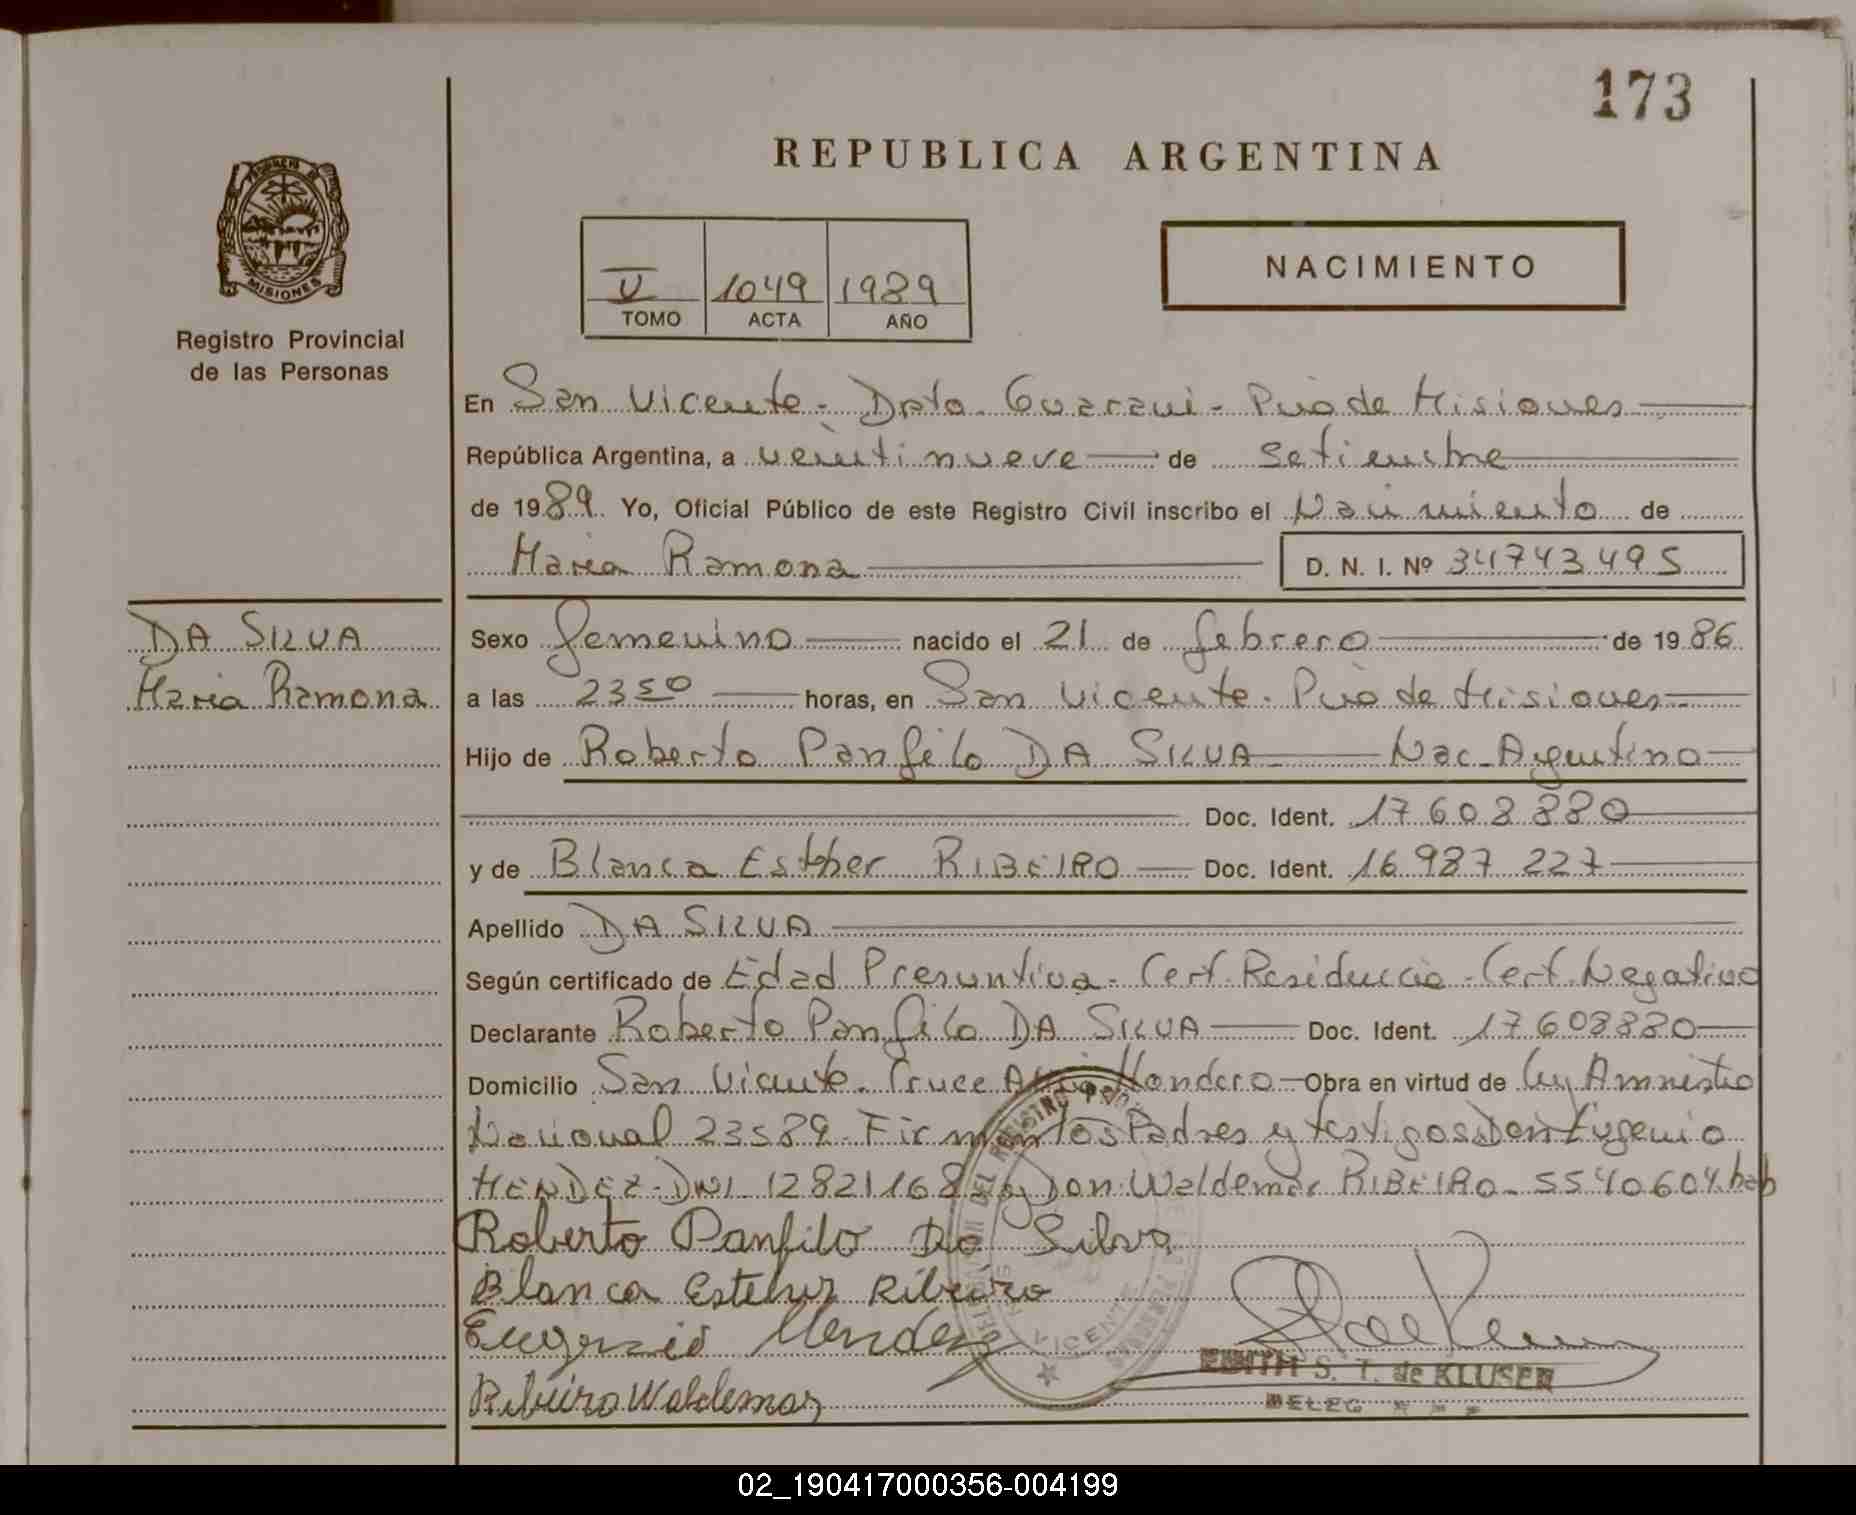 173
REPUBLICA ARGENTINA
MISIONES
Registro Provincial
de las Personas
V 1049 1989
TOMO ACTA AÑO
NACIMIENTO
En San Vicente - Dpto. Guarani - Pcia de Misiones
República Argentina, a veintinueve de setiembre
de 1989. Yo, Oficial Público de este Registro Civil inscribo el Nacimiento de
Maria Ramona D. N. I. Nº 34743495
DA SILVA
Maria Ramona
Sexo femenino nacido el 21 de febrero de 1986
a las 23 50 horas, en San Vicente - Pcia de Misiones
Hijo de Roberto Panfilo DA SILVA Nac. Argentino
Doc. Ident. 17 608 880
y de Blanca Esther RIBEIRO Doc. Ident. 16 987 227
Apellido DA SILVA
Según certificado de Edad Presuntiva - Cert. Residencia - Cert. Negativo
Declarante Roberto Panfilo DA SILVA Doc. Ident. 17.608880
Domicilio San Vicente - Cruce Obra en virtud de Ley Amnistia
Nacional 23589 - Firman los Padres y testigos Don Eugenio
MENDEZ - DNI 12821168 y Don Waldemar RIBEIRO - 5540604
Roberto Panfilo Da Silva
Blanca Esteher Ribeiro
Eugenio Mendez
Ribeiro Waldemar
EDITH S. T. de KLUSEN
DELEG
VICENTE
02_190417000356-004199